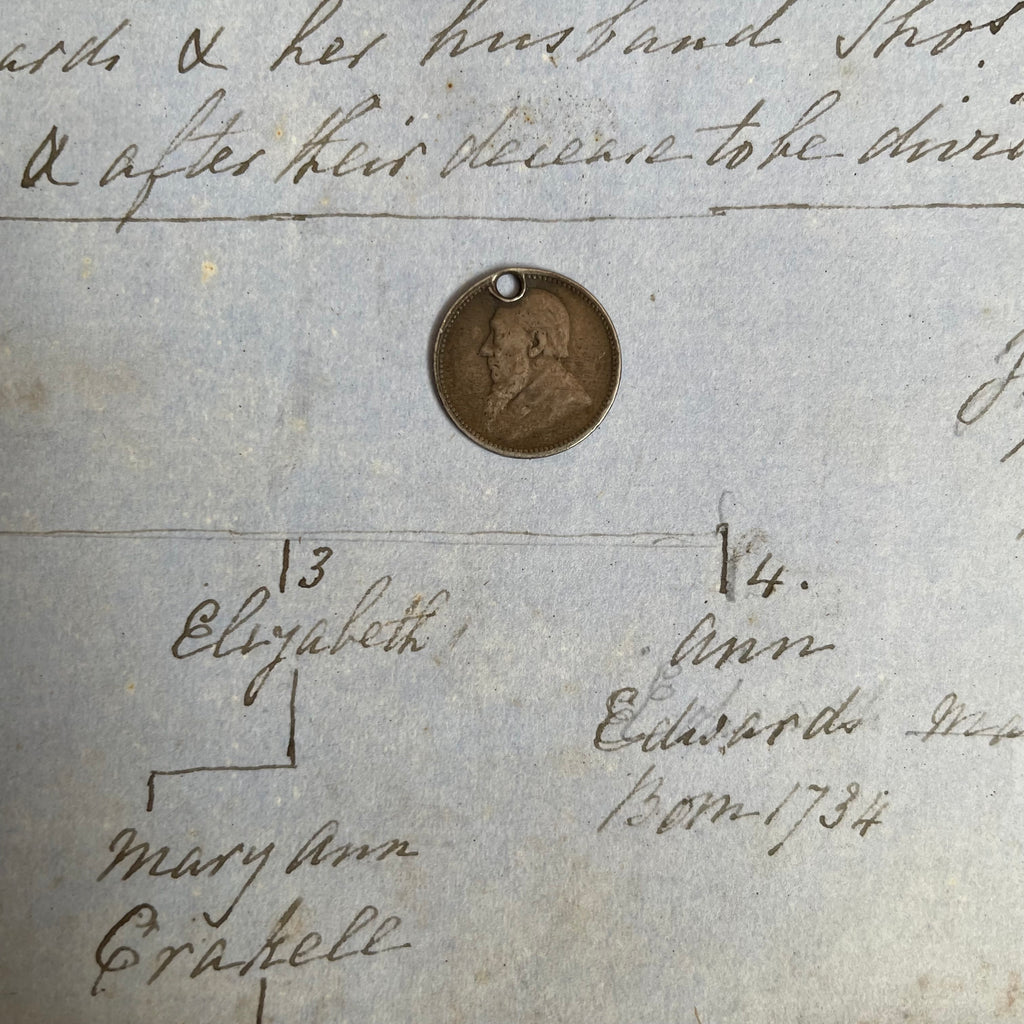 & her husband Thos.
& after their decease to be
3
4.
Elizabeth
Ann
Edwards
Born 1734
Mary Ann
Crakell